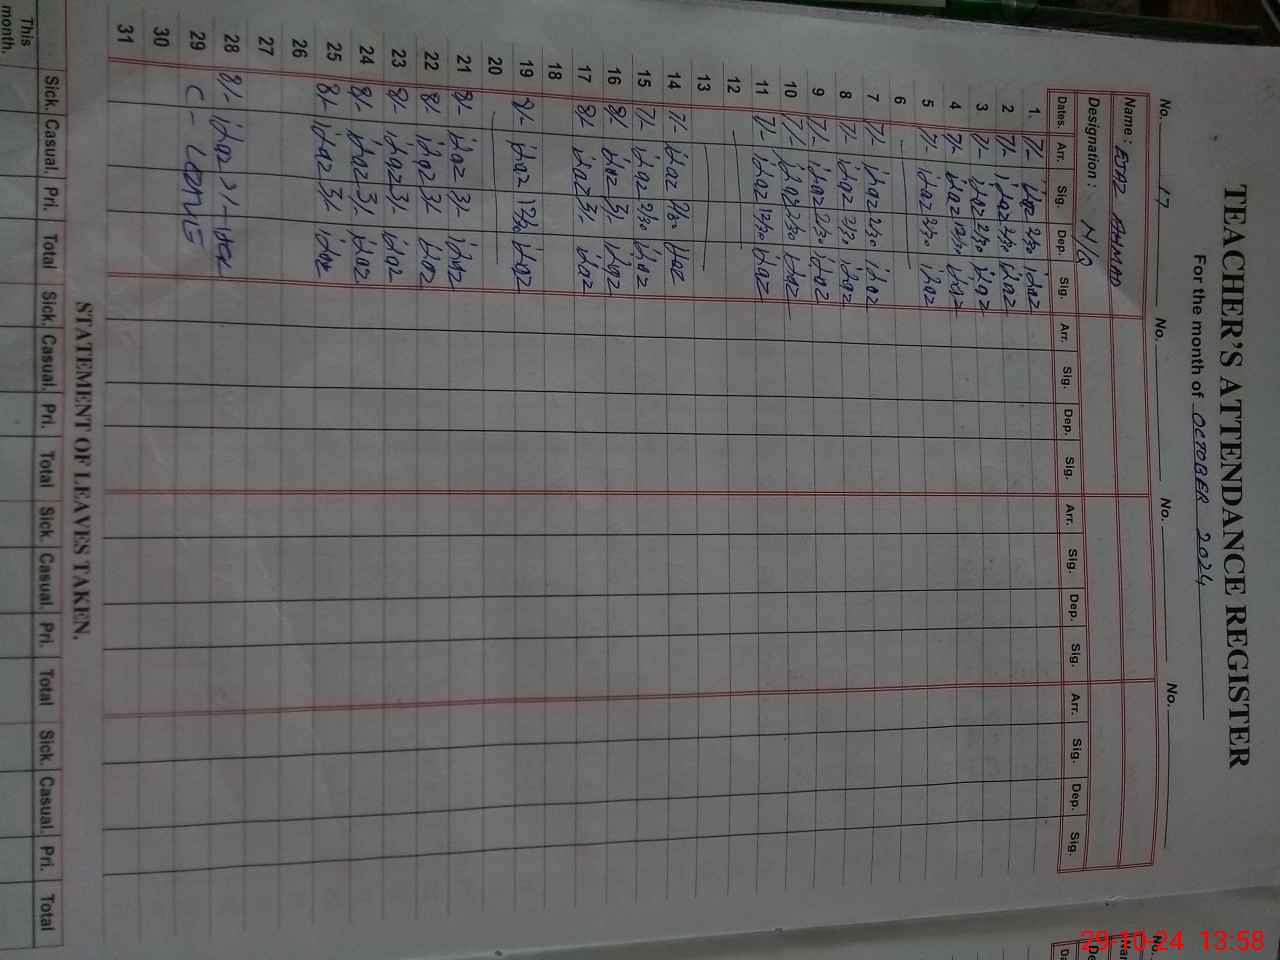 TEACHER'S ATTENDANCE REGISTER
For the month of OCTOBER 2024
No. 17 No. No. No.
Name: EJAZ AHMAD
Designation: N/Q
Dates. Arr. Sig. Dep. Sig. Arr. Sig. Dep. Sig. Arr. Sig. Dep. Sig. Arr. Sig. Dep. Sig.
1. 7/- ijaz 2/30 ijaz
2 7/- ijaz 2/30 ijaz
3 7/- ijaz 2/30 ijaz
4 7/- ijaz 12/30 ijaz
5 7/- ijaz 2/30 ijaz
6
7 7/- ijaz 2/30 ijaz
8 7/- ijaz 2/30 ijaz
9 7/- ijaz 2/30 ijaz
10 7/- ijaz 2/30 ijaz
11 7/- ijaz 12/30 ijaz
12
13
14 7/- ijaz 2/30 ijaz
15 7/- ijaz 2/30 ijaz
16 8/- ijaz 3/- ijaz
17 8/- ijaz 3/- ijaz
18
19 8/- ijaz 12/30 ijaz
20
21 8/- ijaz 3/- ijaz
22 8/- ijaz 3/- ijaz
23 8/- ijaz 3/- ijaz
24 8/- ijaz 3/- ijaz
25 8/- ijaz 3/- ijaz
26
27
28 8/- ijaz
29 C-
30
31
STATEMENT OF LEAVES TAKEN.
Sick. Casual. Pri. Total Sick. Casual. Pri. Total Sick. Casual. Pri. Total Sick. Casual. Pri. Total
This month.
No.
29-10-24 13:58